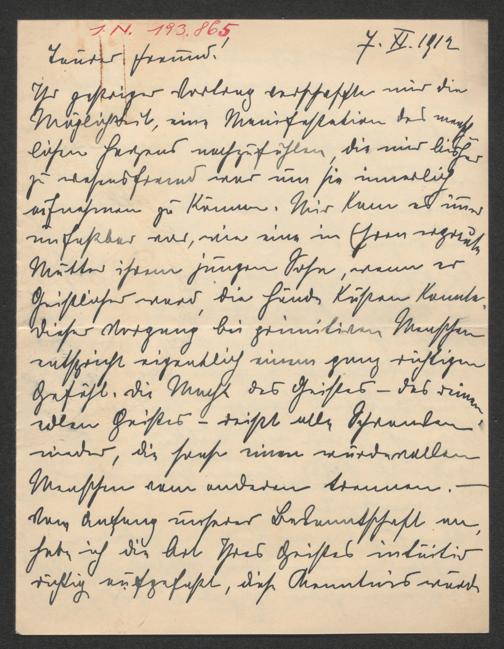 I.N. 193.865
7. XI. 1912
Teurer Freund!
Ihr gestriger Vortrag verschaffte mir die
Möglichkeit, eine Manifestation des mensch-
lichen Herzens nachzufühlen, die mir bisher
zu wesensfremd war um sie innerlich
aufnehmen zu können. Mir kam es immer
unfaßbar vor, wie eine in Ehren ergraute
Mutter ihrem jungen Sohn, wenn er
Geistlicher ward, die Hände küssen konnte.
Dieser Vorgang bei primitiven Menschen
entspricht eigentlich einem ganz richtigen
Gefühl. Die Macht des Geistes – des reinen
edlen Geistes – reißt alle Schranken
nieder, die sonst einen würdevollen
Menschen vom anderen trennen. –
Vom Anfang unserer Bekanntschaft an,
habe ich die Art Ihres Geistes intuitiv
richtig aufgefaßt, diese Kenntnis wurde